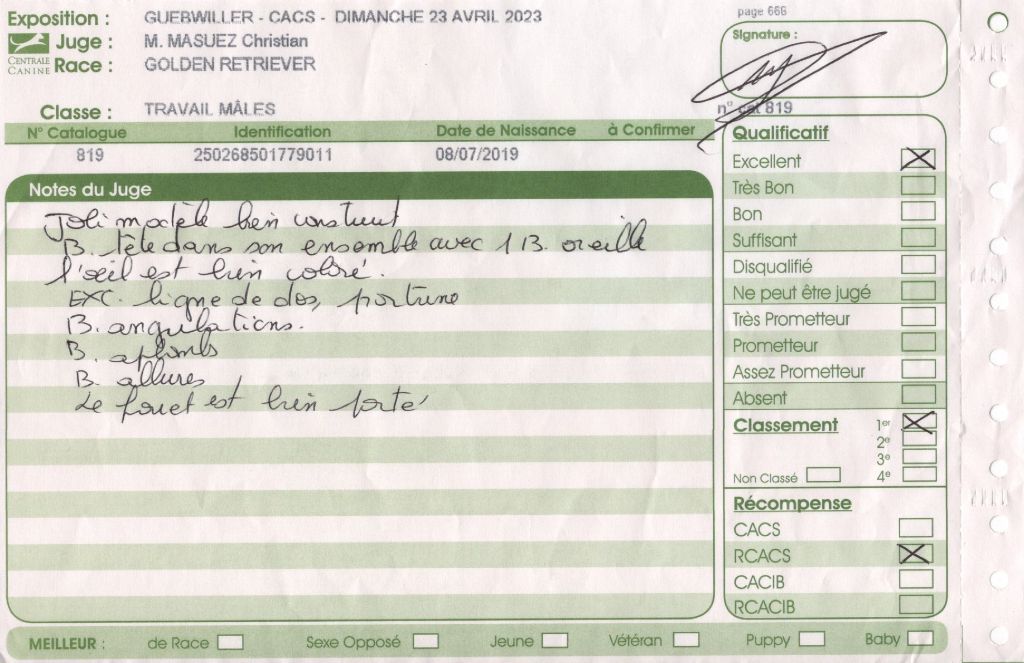 Exposition : GUEBWILLER - CACS - DIMANCHE 23 AVRIL 2023
page 666
Juge : M. MASUEZ Christian
Signature :
CENTRALE CANINE
Race : GOLDEN RETRIEVER
Classe : TRAVAIL MÂLES
n° cat 819
N° Catalogue Identification Date de Naissance à Confirmer
819 250268501779011 08/07/2019
Notes du Juge
Joli modèle bien construit
B. tête dans son ensemble avec 1 B. oreille
l'oeil est bien coloré.
EXC. ligne de dos, poitrine
B. angulations.
B. aplombs
B. allures
Le fouet est bien porté
Qualificatif
Excellent
Très Bon
Bon
Suffisant
Disqualifié
Ne peut être jugé
Très Prometteur
Prometteur
Assez Prometteur
Absent
Classement 1er
2e
3e
Non Classé 4e
Récompense
CACS
RCACS
CACIB
RCACIB
MEILLEUR : de Race Sexe Opposé Jeune Vétéran Puppy Baby